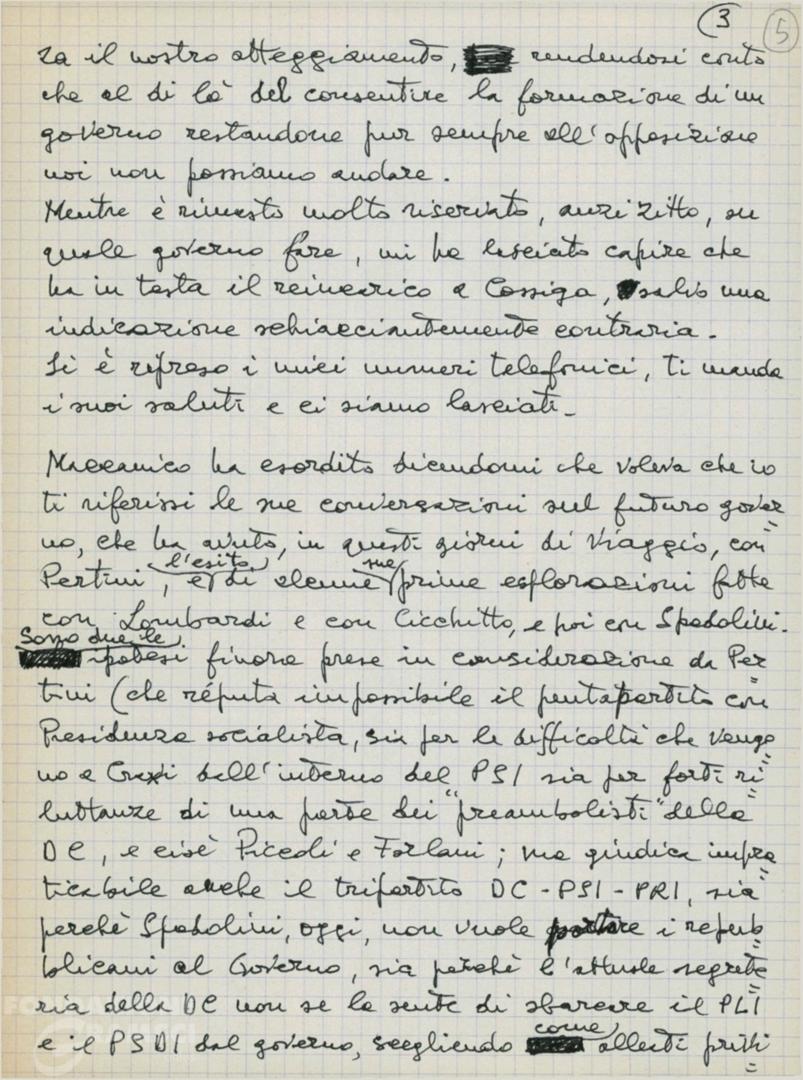 3
5
za il nostro atteggiamento, rendendosi conto
che al di là del consentire la formazione di un
governo restandone pur sempre all'opposizione
noi non possiamo andare.
Mentre è rimasto molto riservato, anzi zitto, su
quale governo fare, mi ha lasciato capire che
ha in testa il reincarico a Cossiga, salvo una
indicazione schiacciantemente contraria.
Si è ripreso i miei numeri telefonici, ti manda
i suoi saluti e ci siamo lasciati_
Maccanico ha esordito dicendomi che voleva che io
ti riferissi le sue conversazioni sul futuro gover=
no, che ha avuto, in questi giorni di viaggio, con
Pertini, e l'esito di alcune sue prime esplorazioni fatte
con Lombardi e con Cicchitto, e poi con Spadolini.
Sono due le ipotesi finora prese in considerazione da Per=
tini (che reputa impossibile il pentapartito con
Presidenza socialista, sia per le difficoltà che vengo=
no a Craxi dall'interno del PSI sia per forti ri=
luttanze di una parte dei "preambolisti" della
DC, e cioè Piccoli e Forlani; ma giudica impra=
ticabile anche il tripartito DC-PSI-PRI, sia
perché Spadolini, oggi, non vuole portare i repub=
blicani al Governo, sia perché l'attuale segrete=
ria della DC non se la sente di sbarcare il PLI
e il PSDI dal governo, scegliendo come alleati privi=